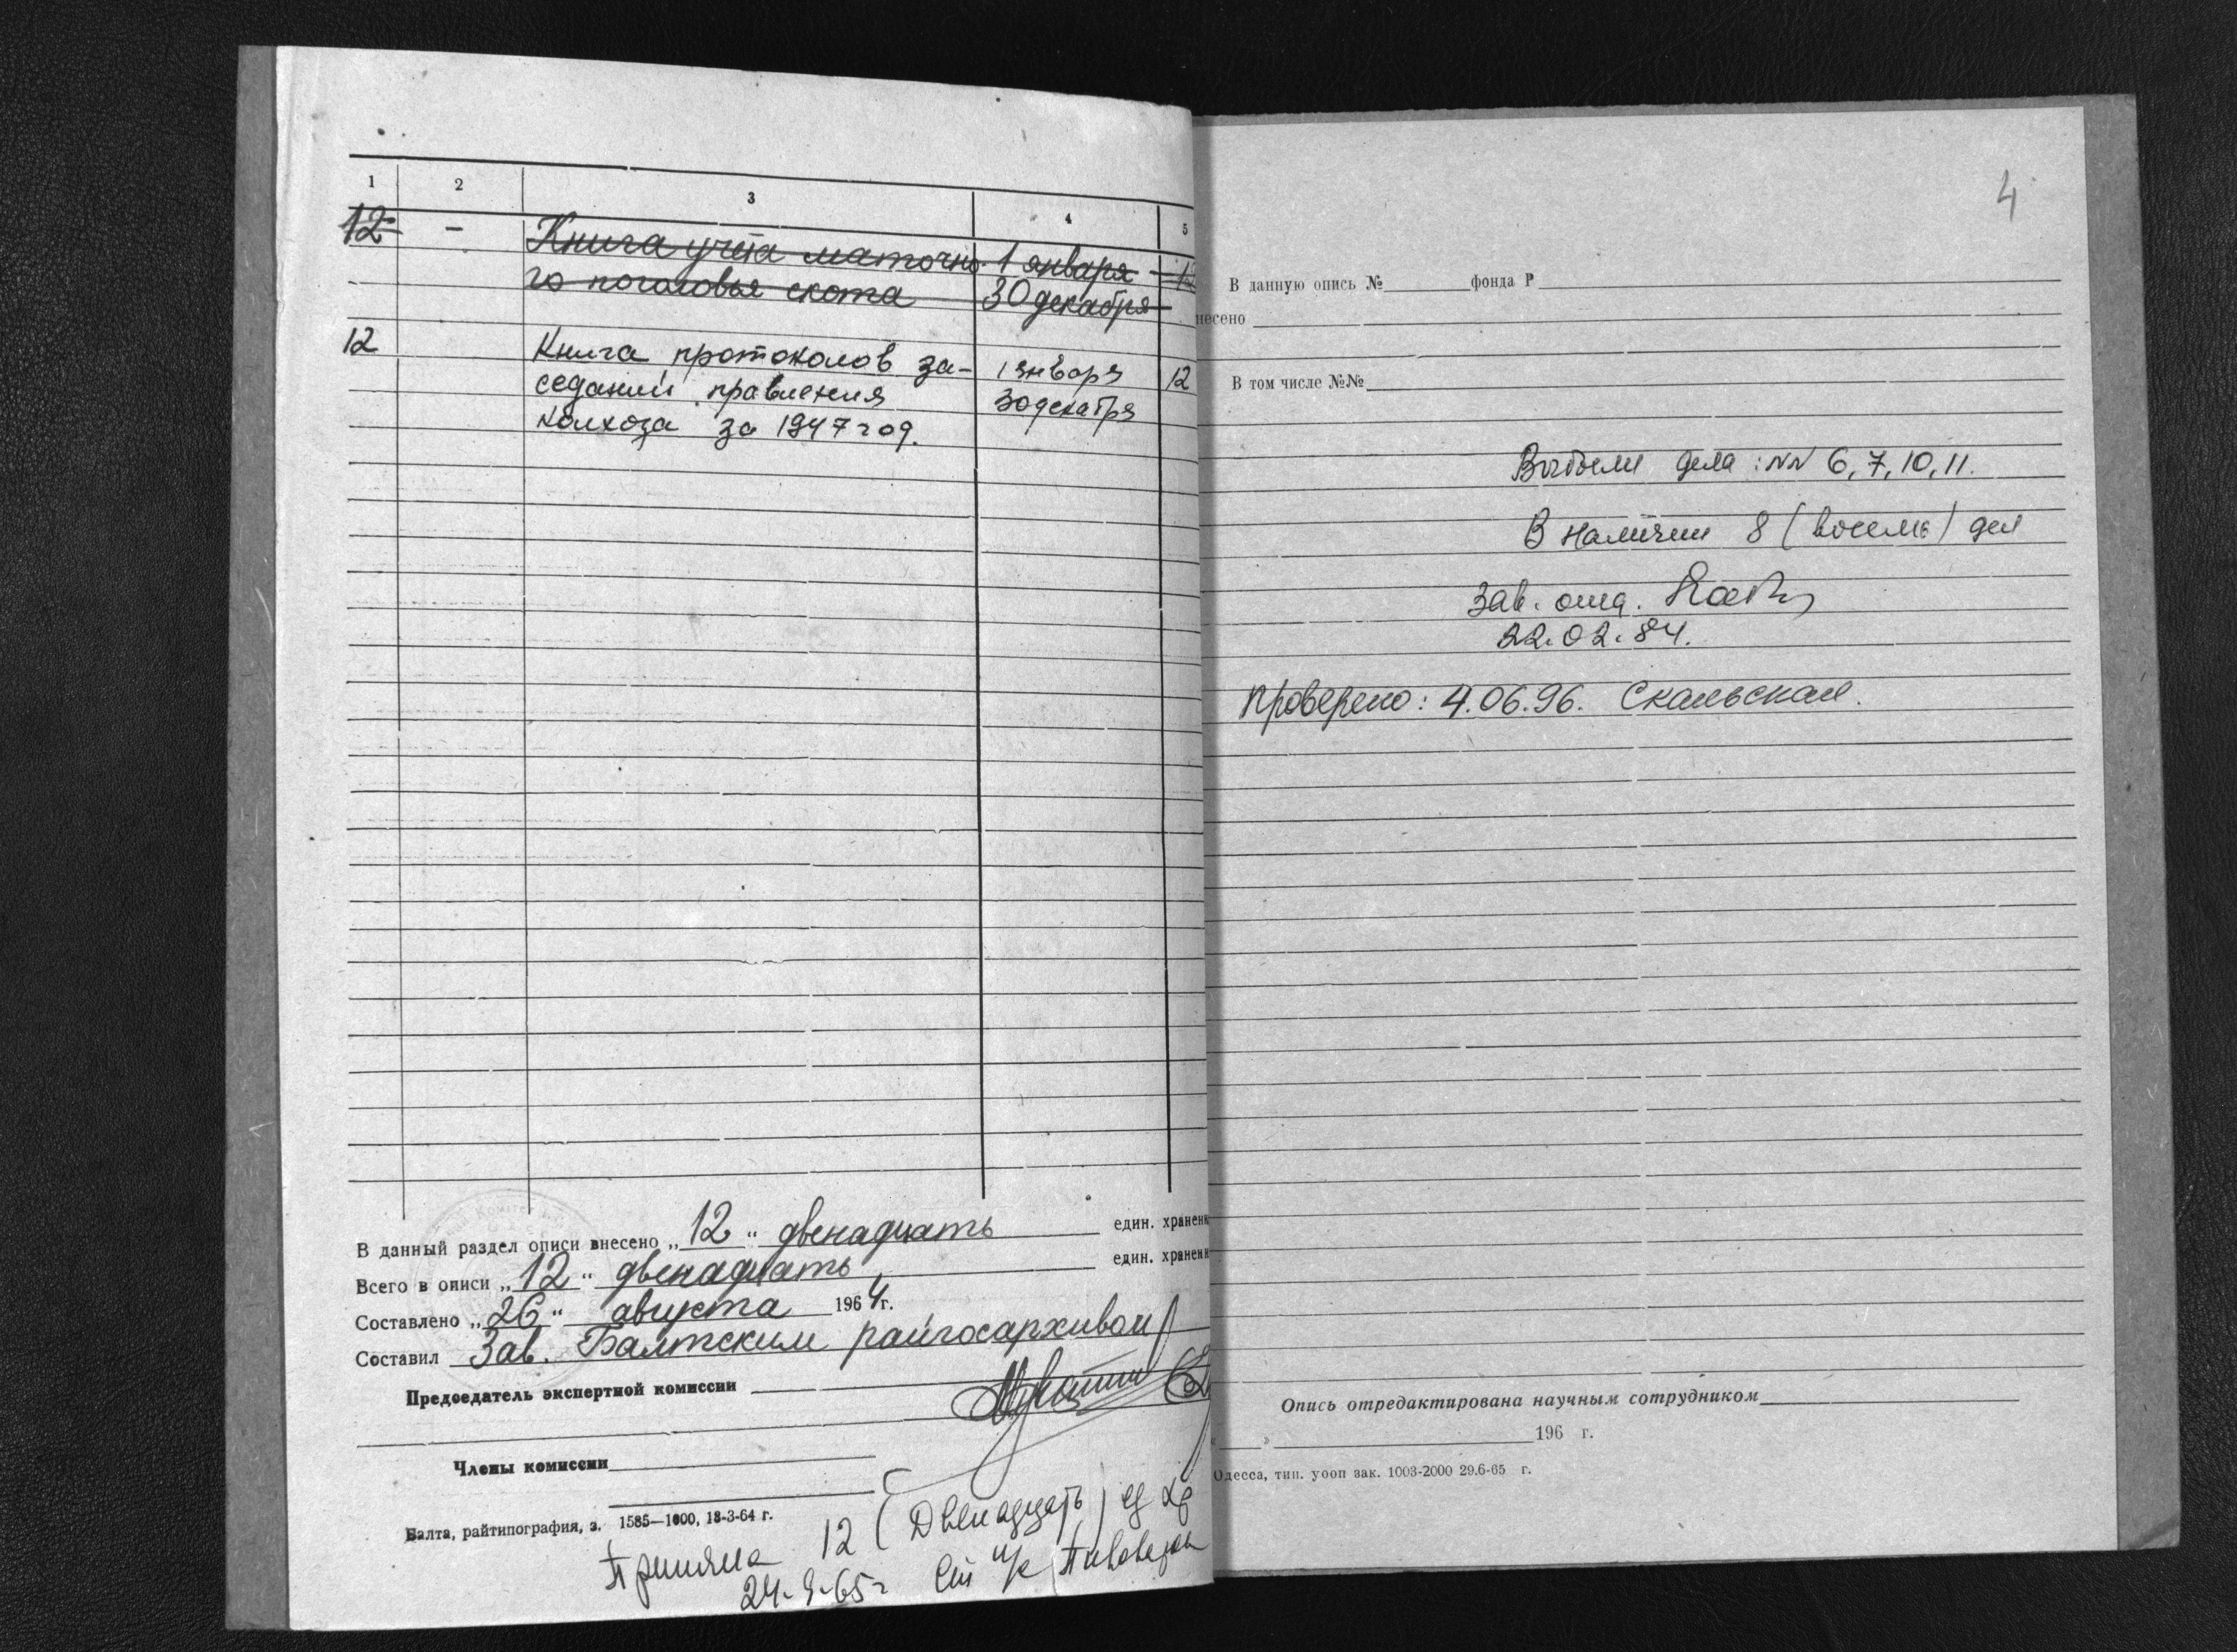 1 2 3 4 5
12 - Книга учета маточно- 1 января - 12
го поголовья скота 30 декабря
12 Книга протоколов за- 1 января 12
седаний правления 30 декабря
колхоза за 1947 год.
В данный раздел описи внесено „12" двенадцать един. хранени
Всего в описи „12" двенадцать един. хранени
Составлено „26" августа 1964 г.
Составил Зав. Балтским райгосархивом
Председатель экспертной комиссии
Члены комиссии
Балта, райтипография, з. 1585—1000, 18-3-64 г.
Приняла 12 (Двенадцать) ед хр
24-9-65г Ст н/с
4
В данную опись № фонда Р
несено
В том числе №№
Выбыли дела: NN 6, 7, 10, 11.
В наличии 8 (восемь) дел
Зав. отд.
22.02.84.
Проверено: 4.06.96. Скальская.
Опись отредактирована научным сотрудником
« » 196 г.
Одесса, тип. уооп зак. 1003-2000 29.6-65 г.